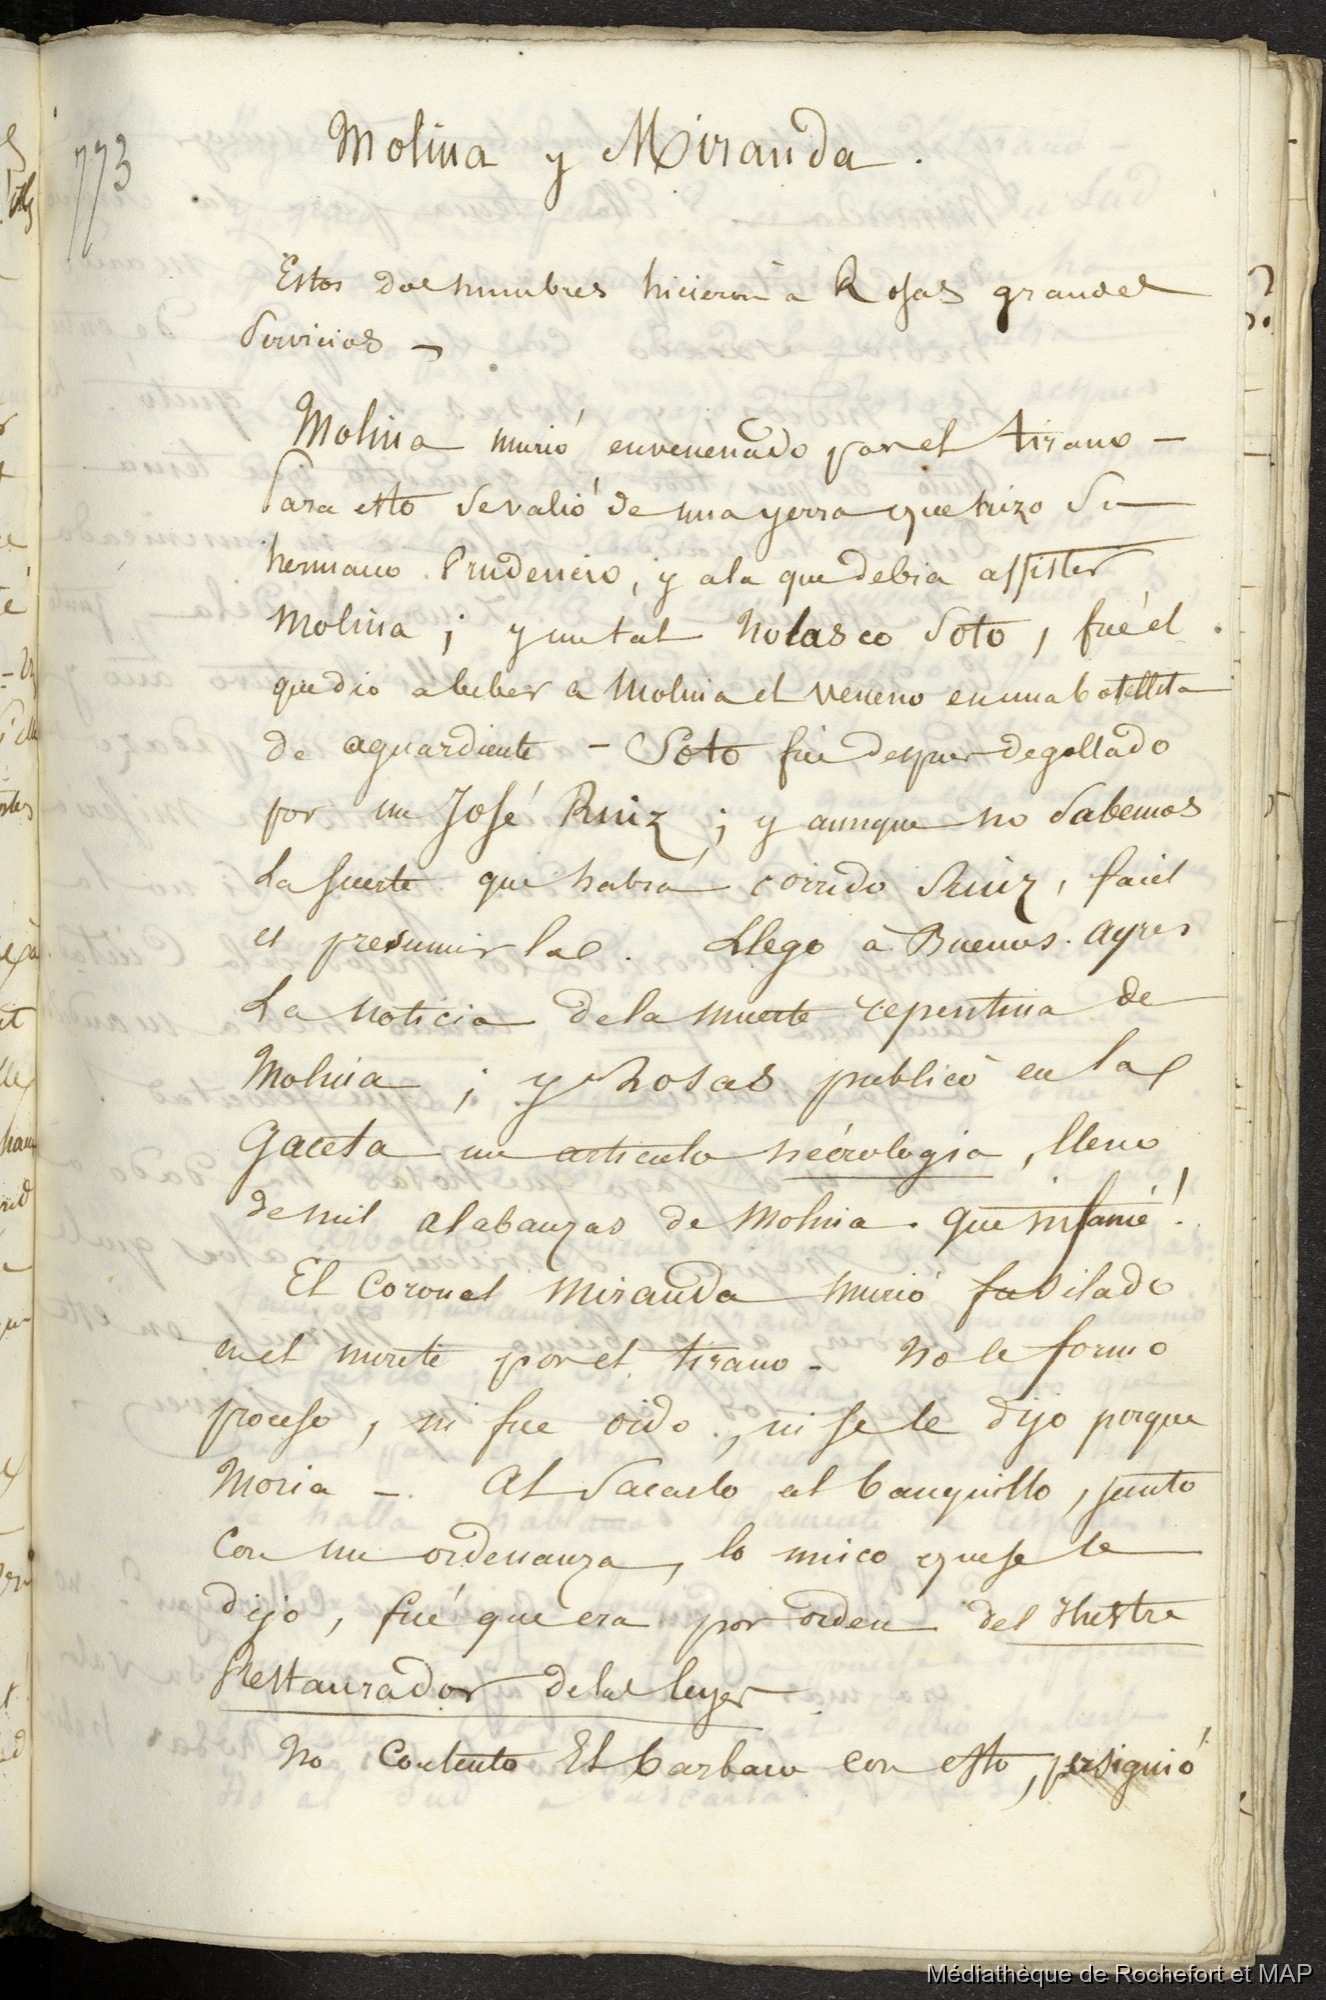 773
Molina y Miranda.
Estos dos hombres hicieron à Rosas grandes
servicios —
Molina murió envenenado por el tirano —
Para esto se valió de una yerra que hizo su
hermano Prudencio, y a la que debia assister
Molina ; y un tal Nolasco Soto, fué el
que dio a beber a Molina el veneno en una botellita
de aguardiente — Soto fue despues degollado
por un José Ruiz ; y aunque no sabemos
la suerte que habrá corrido Ruiz, facil
es presumirla. Llego à Buenos. ayres
La noticia de la muerte repentina de
Molina ; y Rosas publicò en la
Gaceta un articulo necrologia, lleno
de mil alabanzas de Molina. que infamé!
El Coronel Miranda murió fusilado
en el monte por el tirano — No le formo
proceso, ni fue oido, ni se le dijo porque
moria —. Al sacarlo al banquillo, junto
con un ordenanza, lo unico que se le
dijo, fué que era por orden del Ilustre
Restaurador de las leyes
No contento El barbaro con esto, persiguió
Médiathèque de Rochefort et MAP